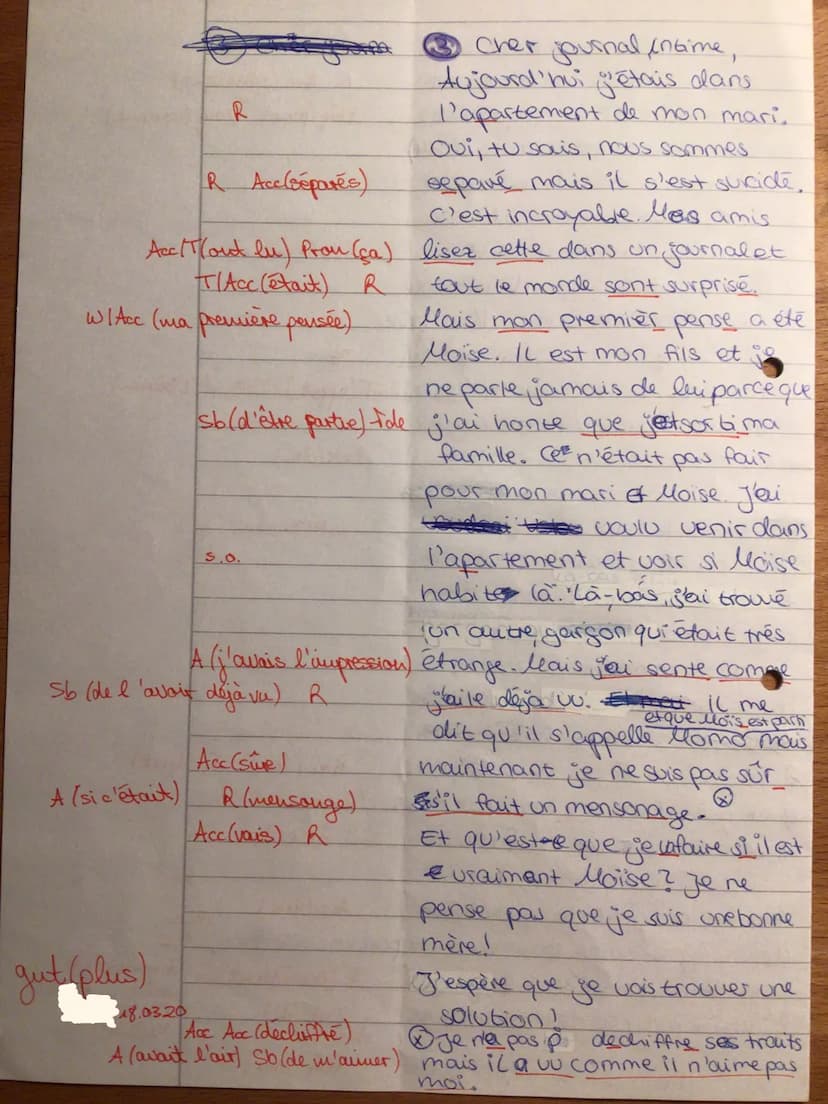 ③ Cher journal intime,
Aujourd'hui j'étais dans
R l'apartement de mon mari.
Oui, tu sais, nous sommes
R Acc (séparés) separé mais il s'est suicidé.
C'est incroyable. Mes amis
Acc/T (ont lu) Pron (ça) lisez cette dans un journal et
T/Acc (était) R tout le monde sont surprisé.
W/Acc (ma première pensée) Mais mon premièr pense a été
Moïse. Il est mon fils et je
ne parle jamais de lui parce que
Sb (d'être partie) + de j'ai honte que ma
famille. Ce n'était pas fair
pour mon mari et Moise. J'ai
voulu venir dans
s.o. l'apartement et voir si Moise
habite là. Là-bás, j'ai trouvé
un autre garçon qui était trés
A (j'avais l'impression) étrange. Mais j'ai sente comme
Sb (de l'avoir déjà vu) R j'ai le déja vu. il me
et que Mois est parti
dit qu'il s'appelle Momo mais
Acc (sûre) maintenant je ne suis pas sûr
A (si c'était) R (mensonge) s'il fait un mensonage. ⓧ
Acc (vais) R Et qu'est-ce que je va faire si il est
vraiment Moïse? Je ne
pense pas que je suis une bonne
mère!
gut (plus) J'espère que je vais trouver une
18.03.20 solution!
Acc Acc (déchiffré) ⓧ Je n'a pas dechiffre ses traits
A (avait l'air) Sb (de m'aimer) mais il a vu comme il n'aime pas
moi.